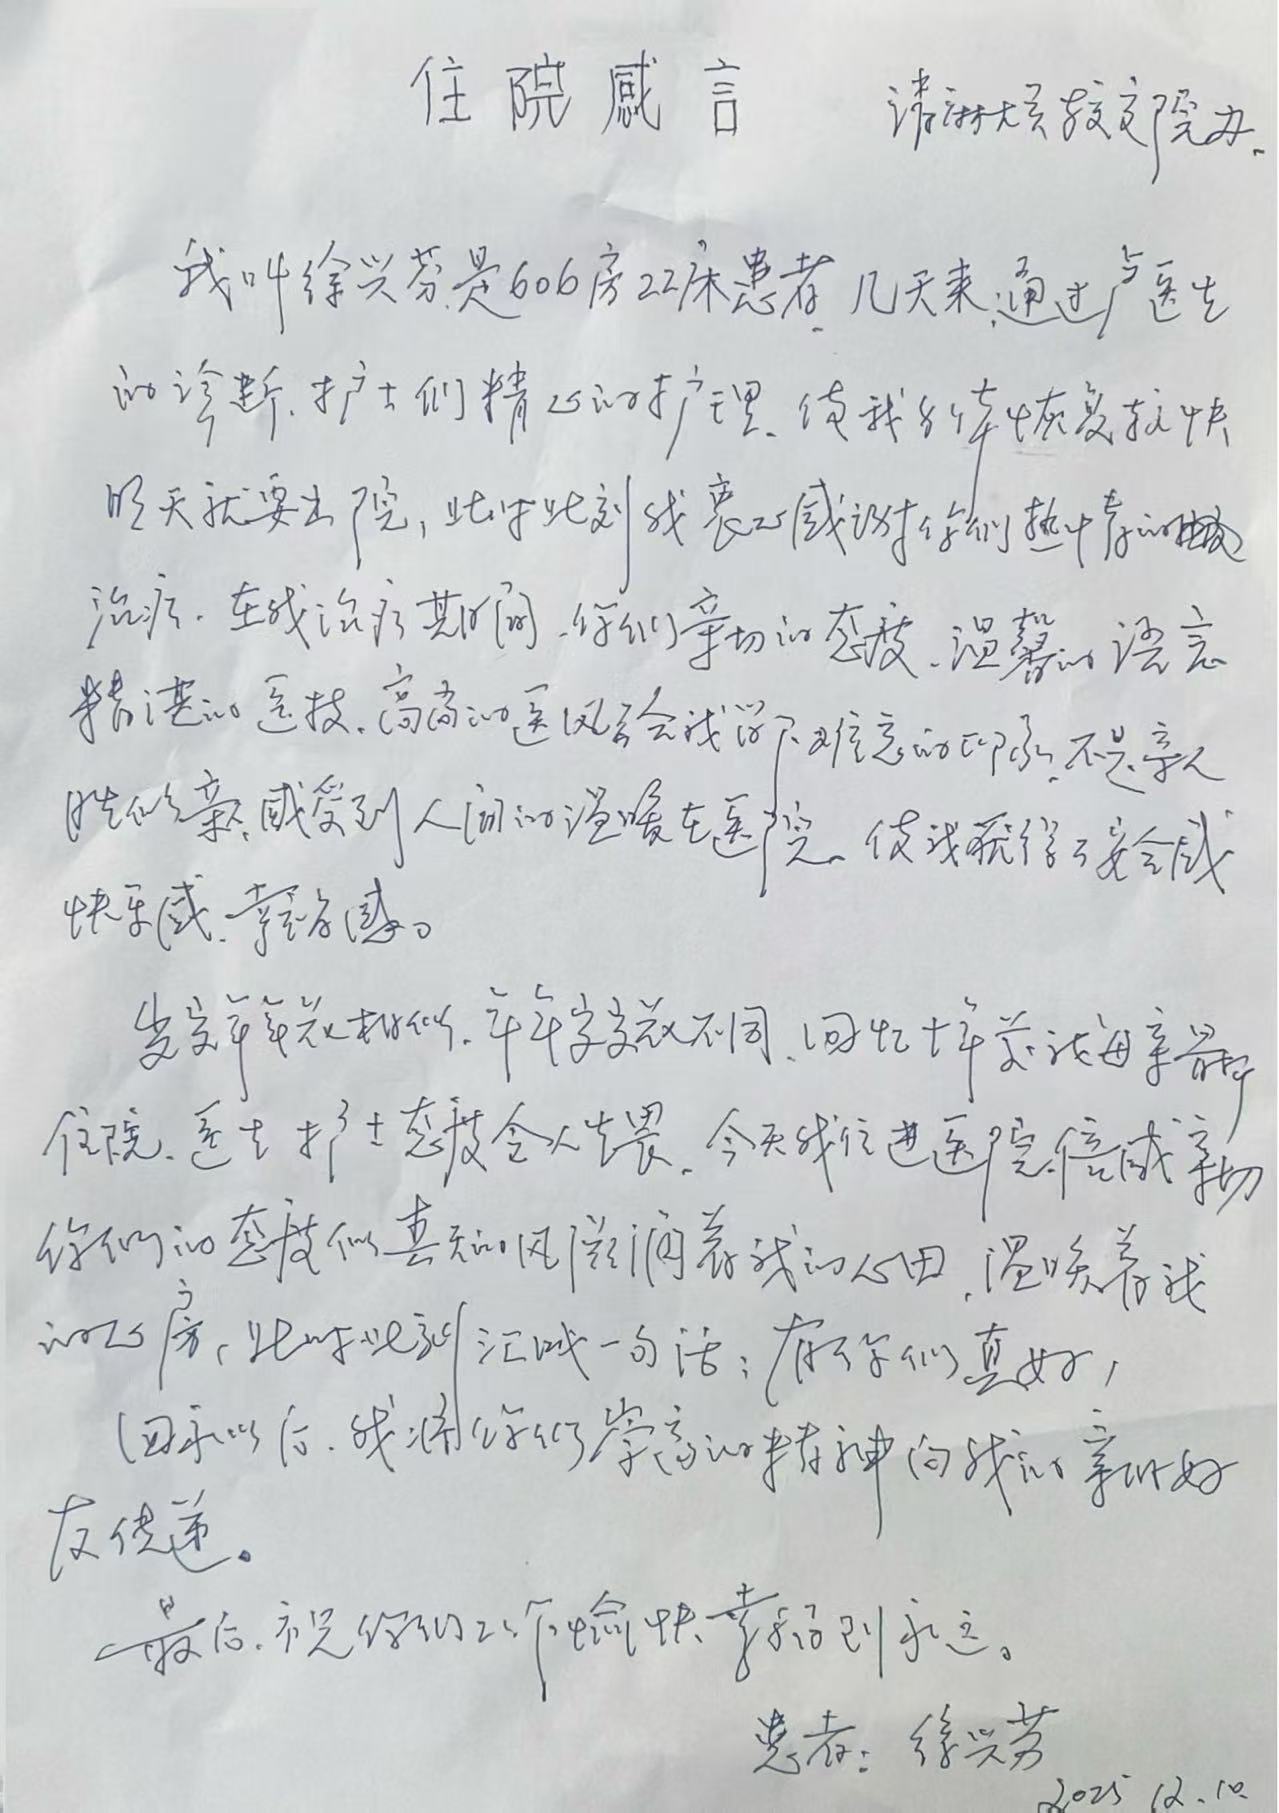 住院感言
请谢大员转交院办.
我叫徐兴芬,是606房22床患者.几天来,通过卢医生
的诊断.护士们精心的护理.使我身体恢复较快
明天就要出院,此时此刻我衷心感谢你们热情的
治疗.在我治疗期间.你们亲切的态度.温馨的语言
精湛的医技.高尚的医风会给我留下难忘的印象.不是亲人
胜似亲.感受到人间的温暖在医院.使我获得了安全感
快乐感.幸福感。
岁岁年年花相似.年年岁岁花不同.回忆十年前我母亲
住院.医生护士态度令人生畏.今天我住进医院倍感亲切
你们的态度似春天的风滋润着我的心田,温暖着我
的心房,此时此刻汇成一句话:有你们真好,
回家以后.我将你们崇高的精神向我的亲朋好
友传递。
最后.祝你们工作愉快.幸福到永远。
患者:徐兴芬
2025.12.10.